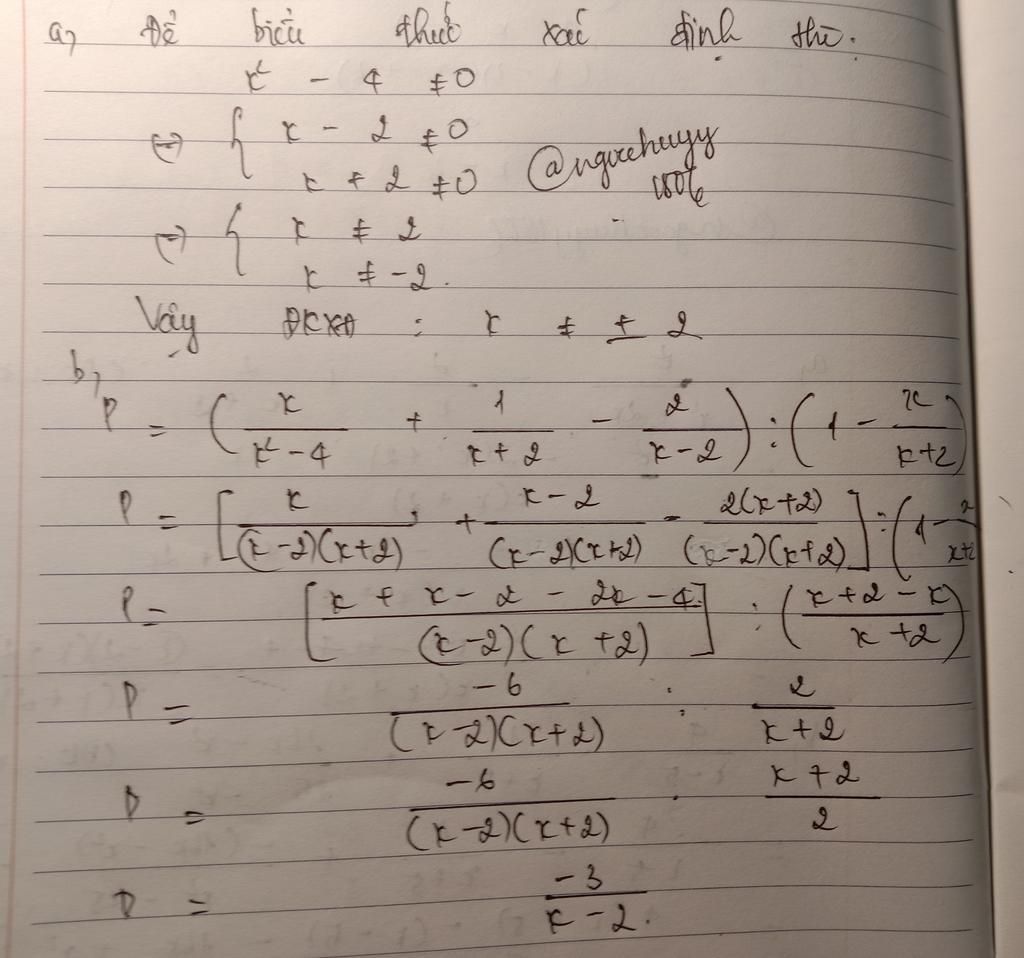 a, Để biểu thức xác định thì.
x² - 4 ≠ 0
⇔ { x - 2 ≠ 0
x + 2 ≠ 0
@ngochuyy
1806
⇔ { x ≠ 2
x ≠ -2.
Vậy ĐKXĐ : x ≠ ± 2
b,
P = (x/(x² - 4) + 1/(x + 2) - 2/(x - 2)) : (1 - x/(x+2))
P = [x/((x - 2)(x + 2)) + (x - 2)/((x - 2)(x + 2)) - 2(x + 2)/((x - 2)(x + 2))] : (1 - /x+2
P = [(x + x - 2 - 2x - 4)/((x - 2)(x + 2))] : ((x + 2 - x)/(x + 2))
P = -6/((x - 2)(x + 2)) : 2/(x + 2)
P = -6/((x - 2)(x + 2)) . (x + 2)/2
P = -3/(x - 2).